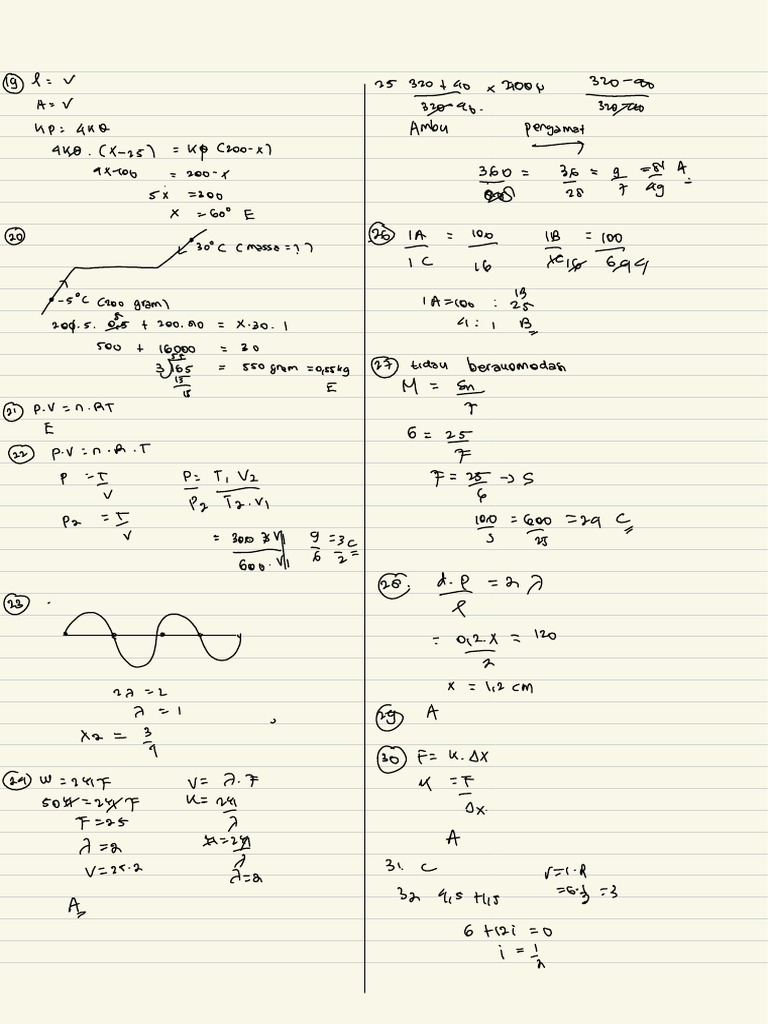 19 l = v
A = v
kp = 4kθ
4kθ . (x-25) = kθ (200-x)
4x-100 = 200-x
5x = 300
x = 60° E
20
30°C (massa = ?)
-5°C (200 gram)
200.5. 0,5 + 200.80 = x.30.1
500 + 16000 = 30
55
3 165 = 550 gram = 0,55 kg
15
15
E
21 P.V = n.RT
E
22 P.V = n.R.T
P = T/V
P2 = T/V
P/P2 = T1 V2 / T2.V1
= 300 3V1 / 600.V1 9/6 = 3/2 C
23
2λ = 2
λ = 1
x2 = 3/4
24 W = 2πF
50π = 2πF
F = 25
λ = 2
V = 25.2
A
V = λ.F
K = 2π/λ
π = 2π/λ
λ = 2
25 320 + 40
320-40
Ambu pengamat
360 = 36/28 = 9/7 = 81/49 A
26 IA/IC = 100/16
IB = 100
IA = 100 : 25
4 : 1 B
27 tidak berakomodasi
M = Sn/F
6 = 25/F
F = 25/6 → S
100/S = 600/25 = 24 C
28. d.P/l = 2 λ
= 0,2.x/2 = 120
x = 1,2 cm
29 A
30 F = K.Δx
K = F/Δx
A
31. C
32 4,5 + 1,5
V = I.R
= 3
6 + 12i = 0
i = 1/2